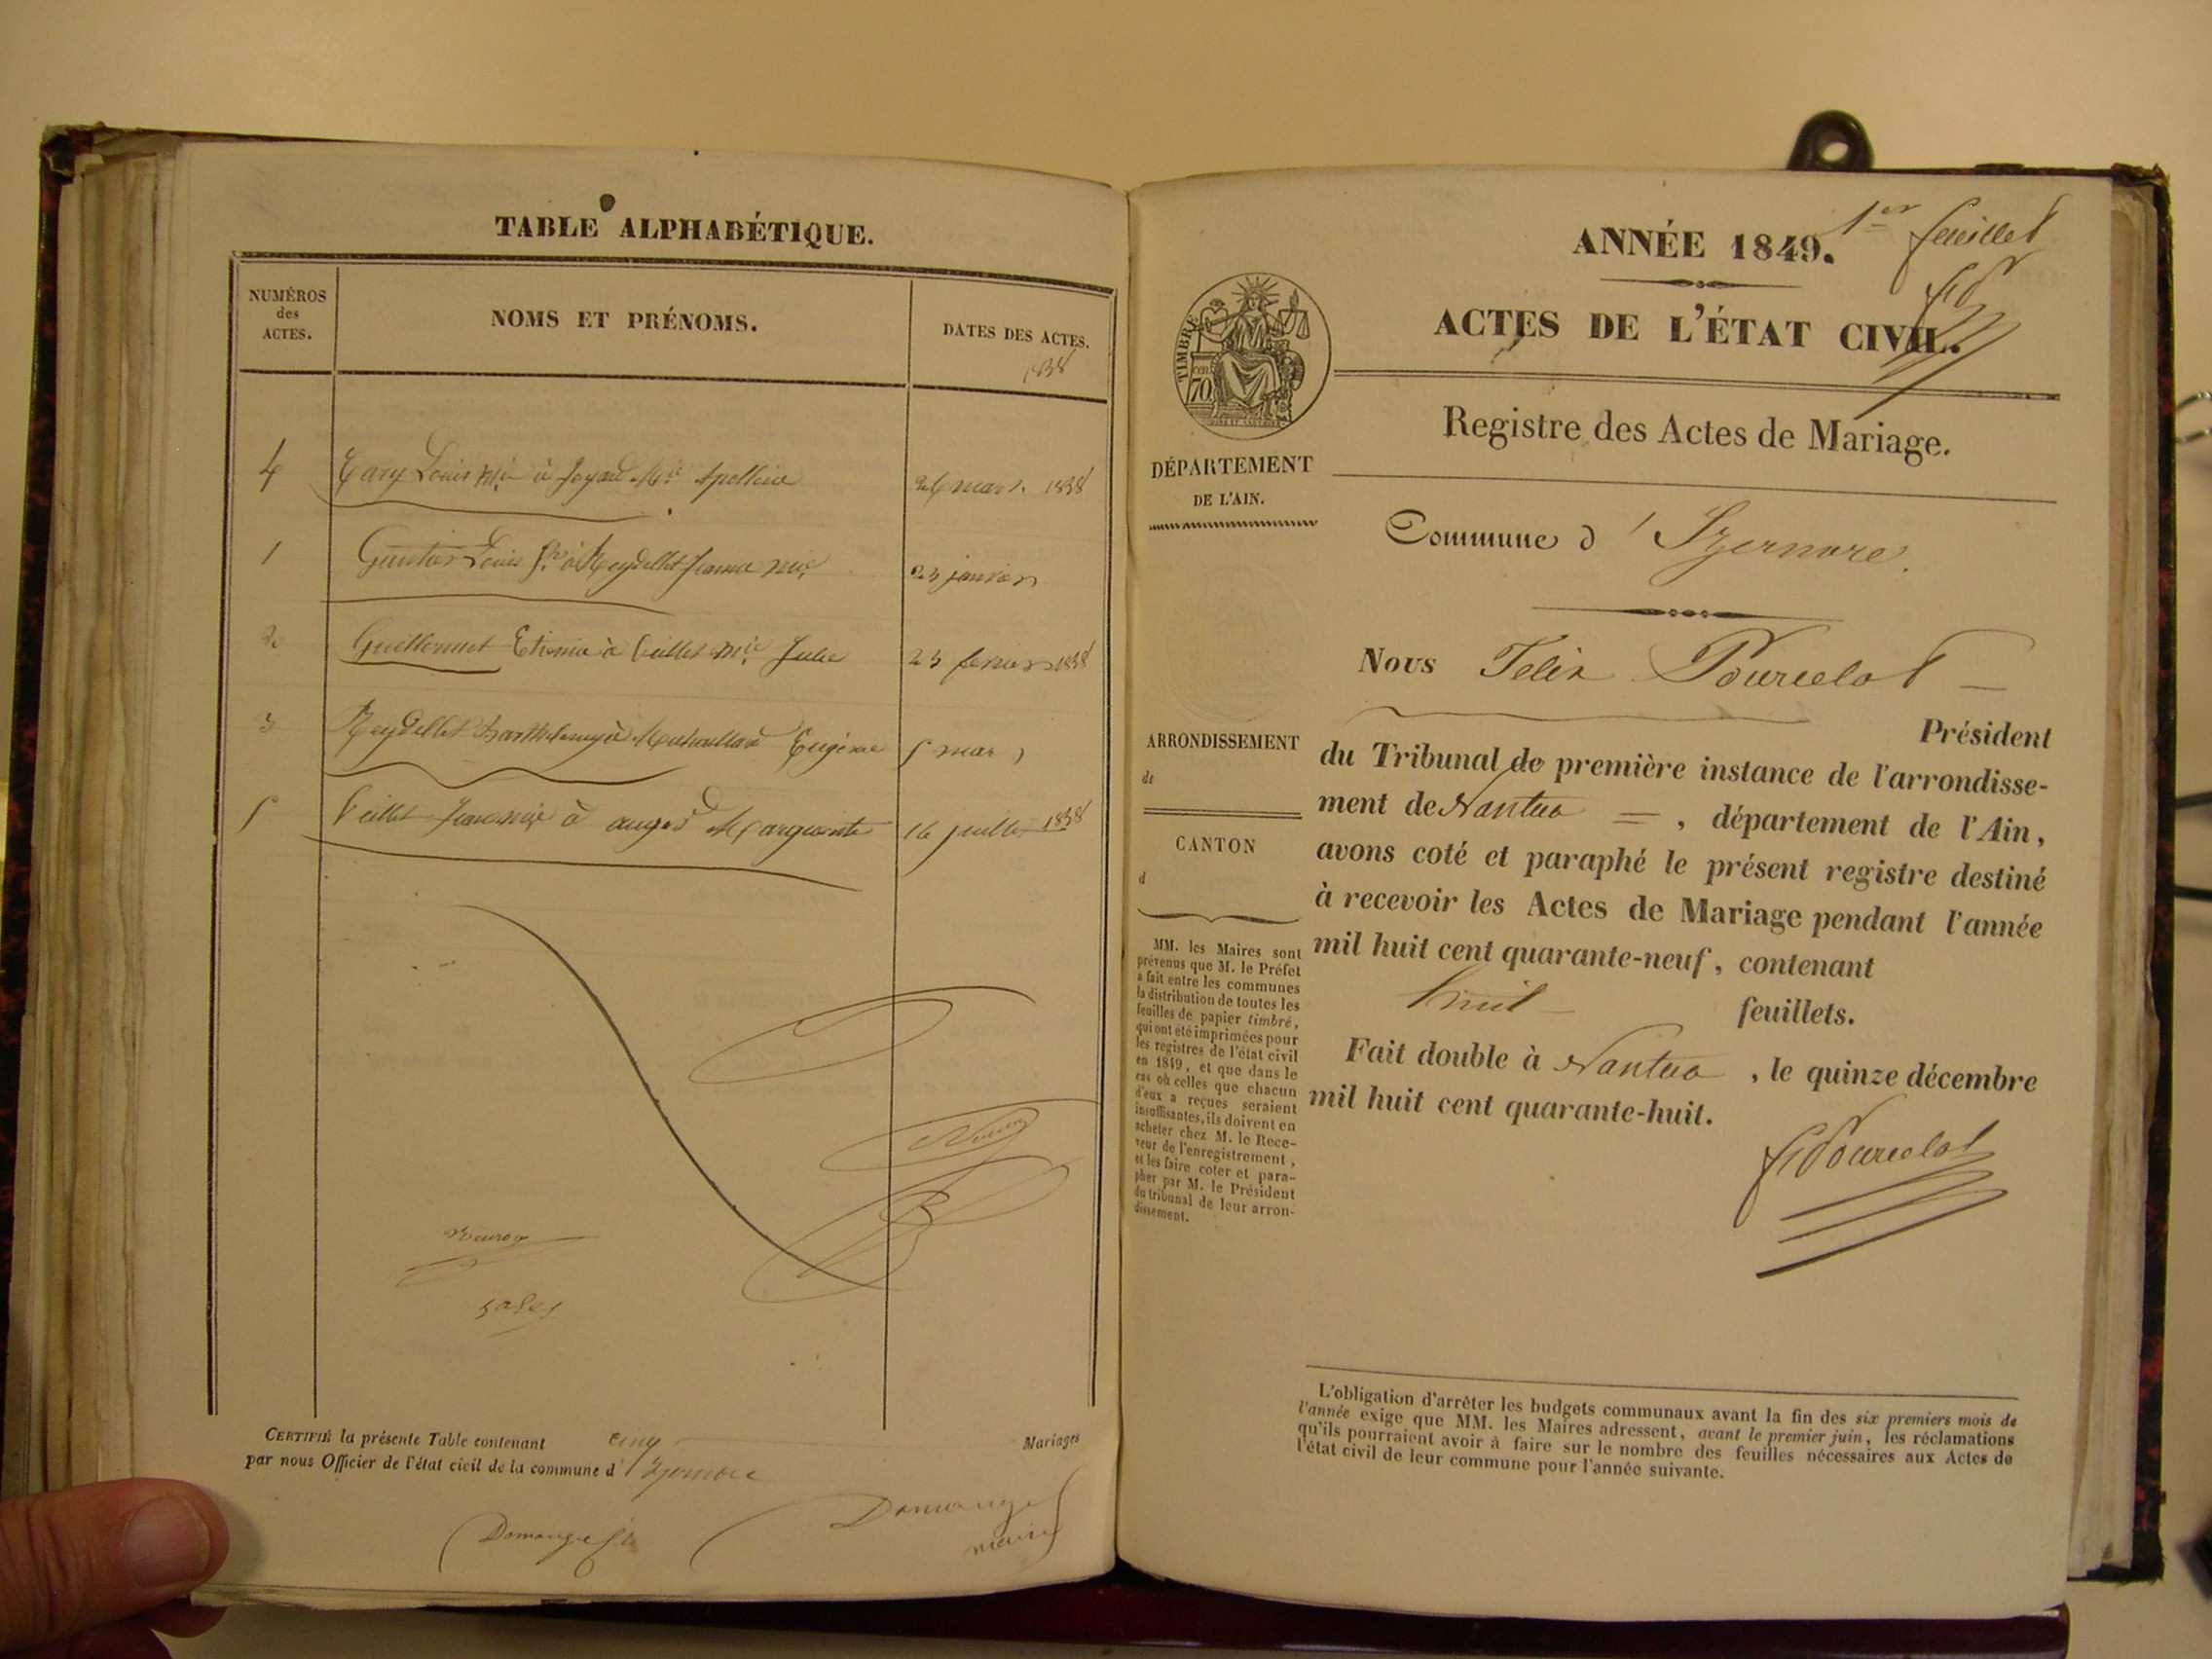 TABLE ALPHABÉTIQUE.
NUMÉROS
des
ACTES.
NOMS ET PRÉNOMS.
DATES DES ACTES.
4 Louis à Joyard Apolline mars.
1 Louis à Reydellet Jeanne 23 janvier
2 Guillermet Etienne à Julie 23
3 Reydellet Barthelemy à Eugénie 5 mars
5 à Marguerite 16 juillet
CERTIFIÉ la présente Table contenant cinq Mariages
par nous Officier de l'état civil de la commune d'Izernore
Domange
Domange
maire
1er feuillet
ANNÉE 1849.
ACTES DE L'ÉTAT CIVIL.
TIMBRE
70
Registre des Actes de Mariage.
DÉPARTEMENT
DE L'AIN.
Commune d'Izernore.
Nous Felix Pourcelot
Président
ARRONDISSEMENT
de
du Tribunal de première instance de l'arrondisse-
ment de Nantua = , département de l'Ain,
CANTON
d
avons coté et paraphé le présent registre destiné
à recevoir les Actes de Mariage pendant l'année
mil huit cent quarante-neuf, contenant
huit feuillets.
Fait double à Nantua , le quinze décembre
mil huit cent quarante-huit.
Pourcelot
MM. les Maires sont
prévenus que M. le Préfet
a fait entre les communes
la distribution de toutes les
feuilles de papier timbré,
qui ont été imprimées pour
les registres de l'état civil
en 1849, et que dans le
cas où celles que chacun
d'eux a reçues seraient
insuffisantes, ils doivent en
acheter chez M. le Rece-
veur de l'enregistrement,
et les faire coter et para-
pher par M. le Président
du tribunal de leur arron-
dissement.
L'obligation d'arrêter les budgets communaux avant la fin des six premiers mois de
l'année exige que MM. les Maires adressent, avant le premier juin, les réclamations
qu'ils pourraient avoir à faire sur le nombre des feuilles nécessaires aux Actes de
l'état civil de leur commune pour l'année suivante.